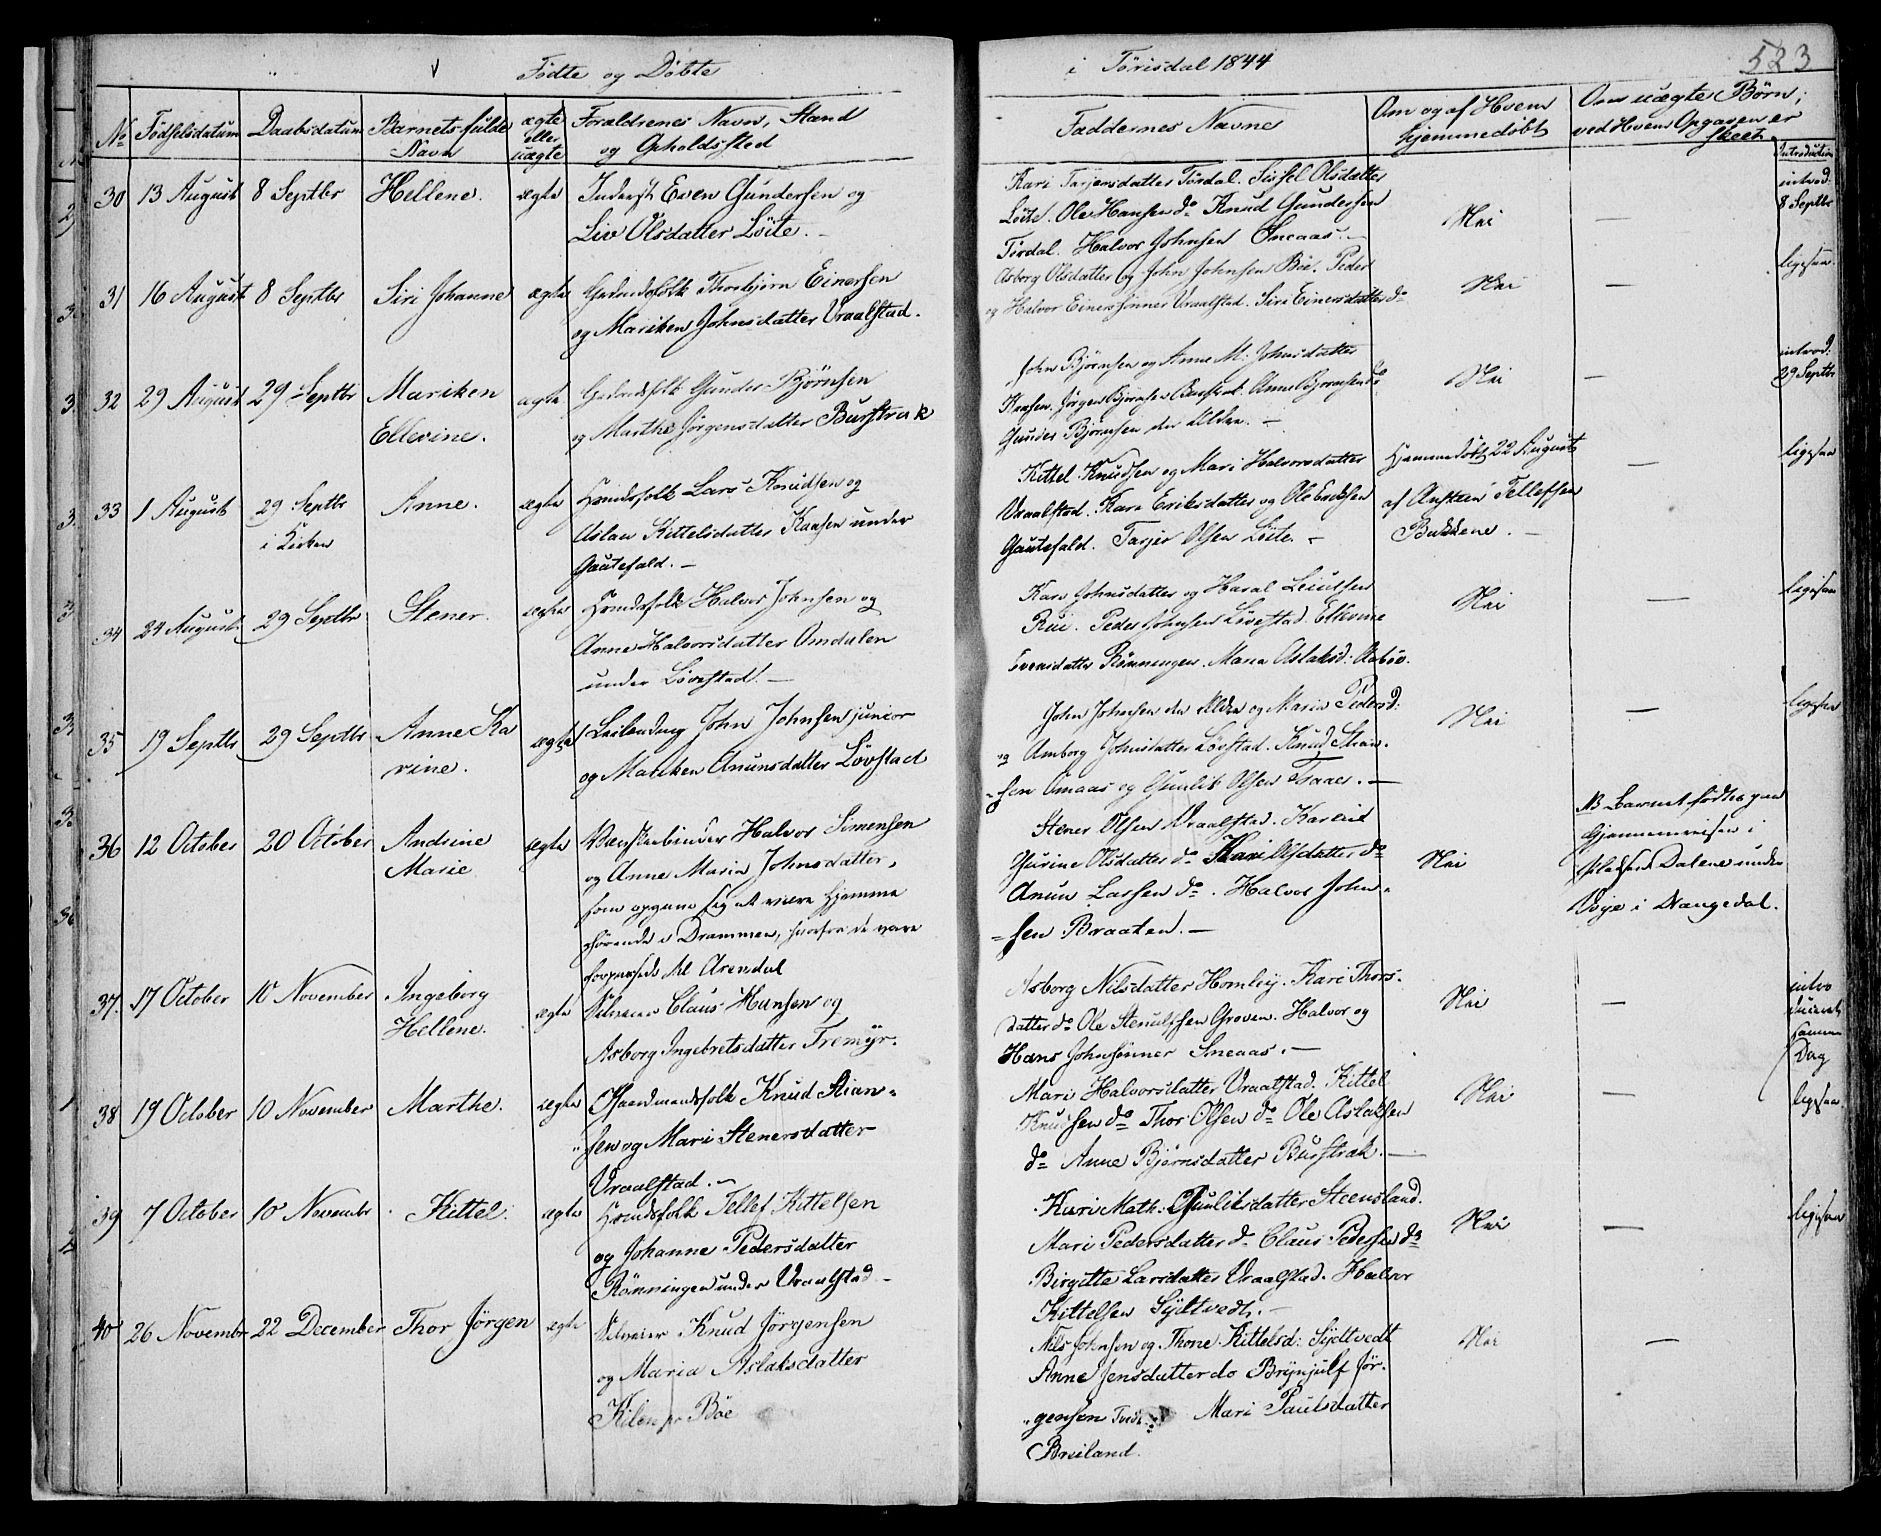 Fødte og Døbte
i Tørisdal 1844
523
No
Fødselsdatum
Daabsdatum
Barnets fulde
Navn
ægte
eller
uægte
Forældrenes Navn, Stand
og Opholdssted
Faddernes Navne
Om og af Hvem
hjemmedøbt
Om uægte Børn;
ved Hvem Opgaven er
skeet
Introduction
30 13 August 8 Septbr Hellene. ægte Inderst Even Gundersen og
Liv Olsdatter Löite. -
Kari Tarjersdatter Tördal. Sissel Olsdatter
Löite. Ole Hansen do Knud Gundersen
Tördal. Halvor Johnsen Smeaas. -
Nei
—
introd:
8 Septbr
31 16 August 8 Septbr Siri Johanne ægte Gaardsfolk Thorbjørn Einersen
og Mariken Johnsdatter Vraalstad.
Asborg Olsdatter og John Johnsen Böe. Peder
og Halvor Einersønner Vraalstad. Siri Einersdatter do
Nei
—
ligesaa.
32 29 August 29 Septbr Mariken
Ellevine.
ægte Gaardsfolk Gunder Bjørnsen
og Marthe Jörgensdatter Busstrak
John Bjørnsen og Anne M: Johnsdatter
Kaasen. Jörgen Bjørnsen Busstrak. Anne Bjørnsend: do
Gunder Bjørnsen den Ældre. -
Nei
—
introd:
29 Septbr
33 1 August 29 Septbr
i Kirken
Anne. ægte Huusfolk Lars Knudsen og
Aslau Kittelsdatter Kaasen under
Gautefald. -
Kittel Knudsen og Mari Halvorsdatter
Vraalstad. Kari Eriksdatter og Ole Eriksen
Gautefald. Tarjer Olsen Löite. -
Hjemmedøbt 22 August
af Ansteen Tellefsen
Bakkene. -
—
ligesaa
34 24 August 29 Septbr Stener. ægte Huusfolk Halvor Johnsen og
Anne Halvorsdatter Omdalen
under Lövestad. -
Kari Johnsdatter og Haral Leiulfsen
Rui. Peder Johnsen Lövestad. Ellevine
Evensdatter Rönningen. Maria Aslaksd: Aabøe.
Nei
—
ligesaa
35 19 Septbr 29 Septbr Anne Ka
rine.
ægte Leilending John Johnsen junior
og Mariken Anunsdatter Lövstad
John Johnsen den Ældre og Maria Pedersd:
og Amborg Johnsdatter Lövstad. Knud Stian-
-sen Omaas og Gunlik Olsen
Nei
—
ligesaa
36 12 October 20 October Andrine
Marie
ægte Bøssebinder Halvor Simensen
og Anne Maria Johnsdatter,
som opgave sig at være Hjemme
hørende i Drammen, hvorfra de vare
forpassede til Arendal
Stener Olsen Vraalstad. Karine
Gurine Olsdatter do Kari Olsdatter do
Anun Larsen do. Halvor John-
-sen Braaten. -
Nei
NB Barnet fødtes paa
Gjennemreisen i
pladsen Dalene under
Voje i Drangedal.
37. 17 October 10 November Ingeborg
Hellene.
ægte Selveier Claus Hansen og
Asborg Ingebretsdatter Tremyr.
Asborg Nilsdatter Homlej. Kari Thors-
datter do Ole Stenulfsen Groven. Halvor og
Hans Johnsønner Smeaas. -
Nei
—
intro
duceret
samme
Dag
38 19 October 10 November Marthe. ægte Gaardmandsfolk Knud Stian-
-sen og Mari Stenersdatter
Vraalstad. -
Mari Halvorsdatter Vraalstad. Kittel
Knudsen do Thor Olsen do Ole Aslaksen
do Anne Bjørnsdatter Busstrak. -
Nei
—
ligesaa
39 7 October 10 Novembr Kittel. ægte Huusfolk Tellef Kittelsen
og Johanne Pedersdatter
Rönningen under Vraalstad -
Kari Math: Gunliksdatter Steensland.
Mari Pedersdatter do Claus Pedersen do
Birgitte Larsdatter Vraalstad. Halvor
Kittelsen Sydtvedt. -
Nei
—
ligesaa
40 26 Novembr 22 December Thor Jørgen ægte Selveier Knud Jørgensen
og Maria Aslaksdatter
Kilen pr Böe
Nils Johnsen og Thone Kittelsd: Sydtvedt
Anne Jensdatter do Brynjulf Jør-
-gensen Tvedt. Mari Paulsdatter
Breiland.
Nei
—